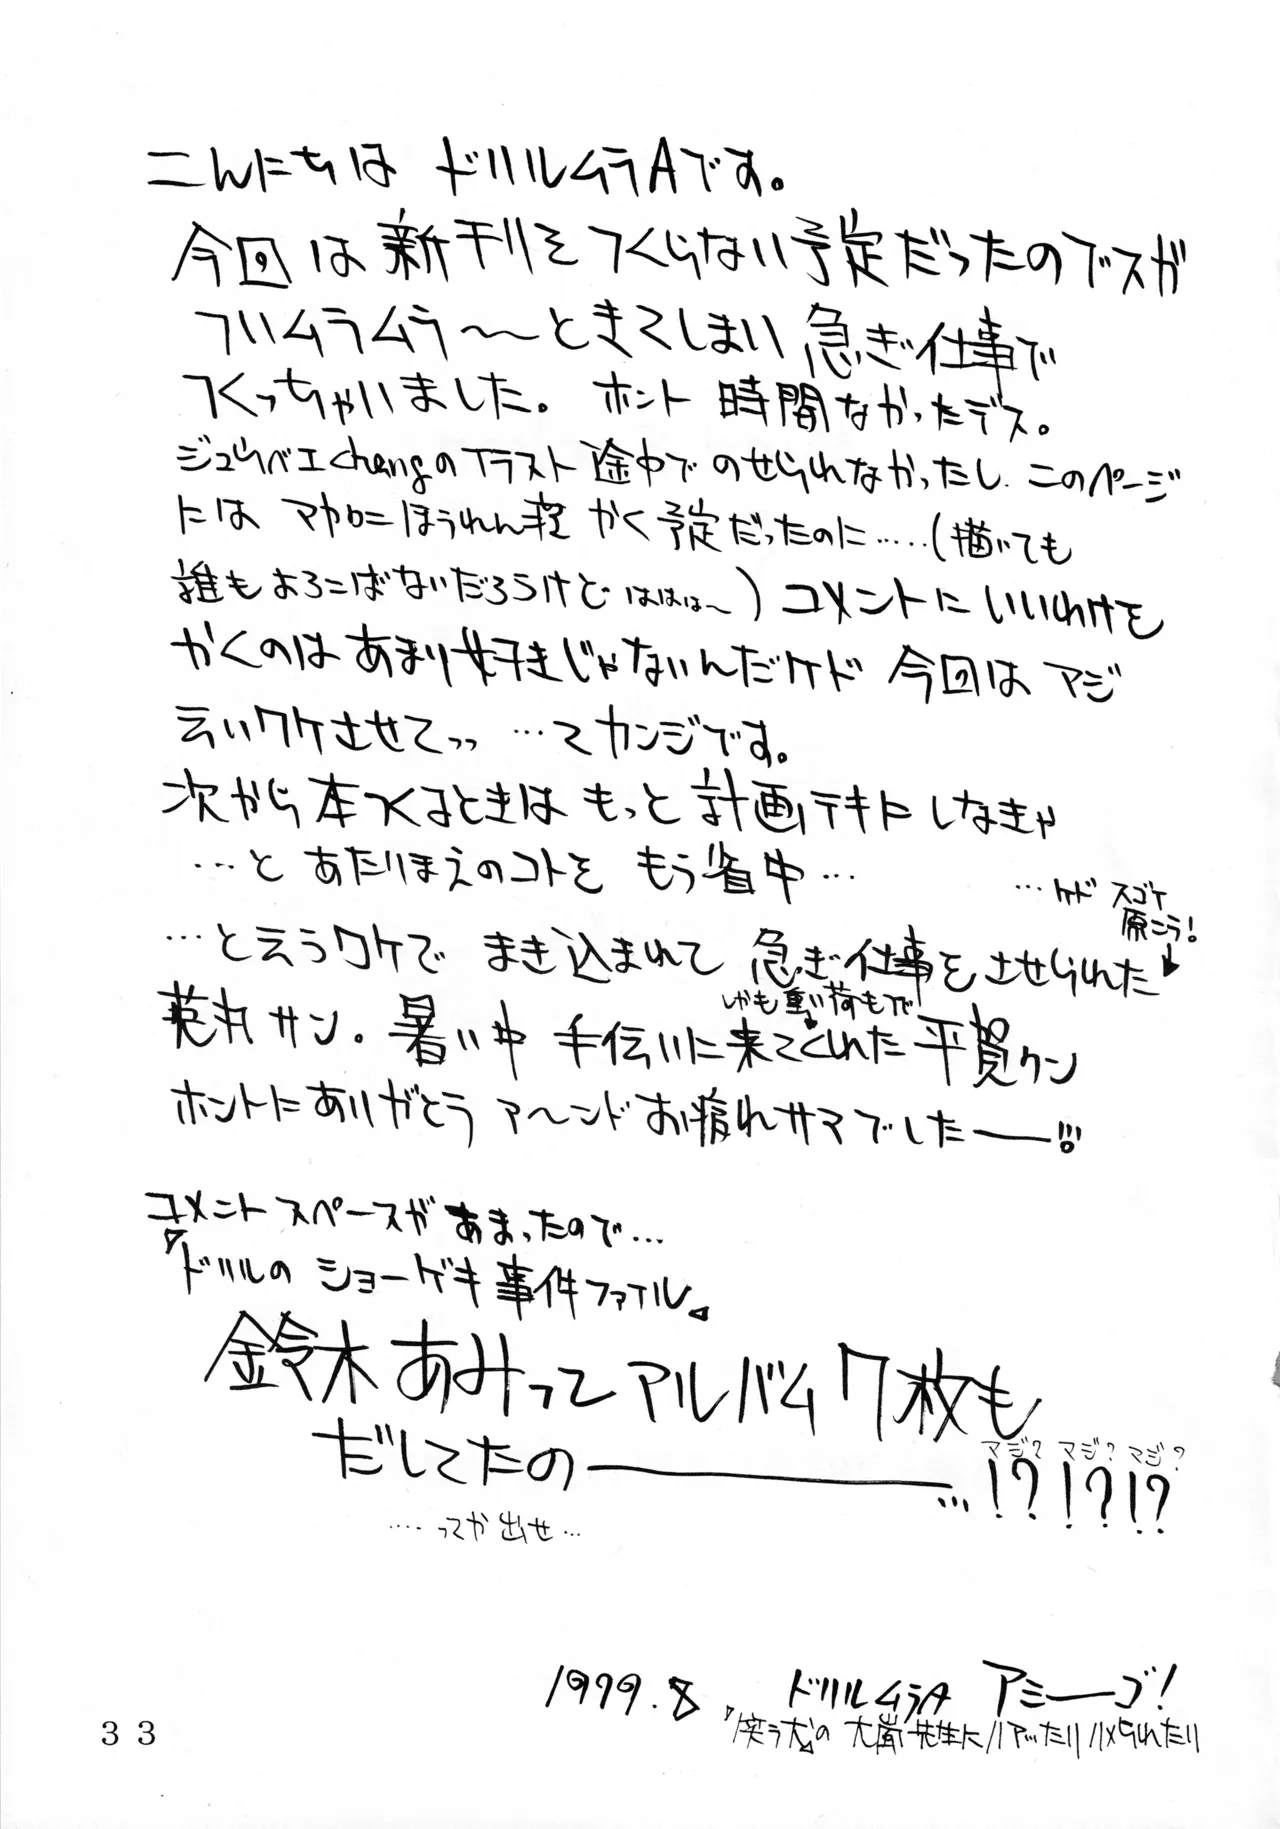 こんにちは ドリルムラAです。
今回は新刊をつくらない予定だったのでスガ
ついムラムラ〜〜ときてしまい 急ぎ仕事で
つくっちゃいました。ホント 時間なかったデス。
ジュウベエchangのイラスト途中でのせられなかったし、このページ
には マカロニほうれん荘 かく予定だったのに……(描いても
誰もよろこばないだろうけど ははは〜) コメントにいいわけを
かくのはあまり好きじゃないんだケド 今回は マジ
云いワケさせてッッ …てカンジです。
次から本つくるときは もっと計画テキに しなきゃ
…と あたりまえのコトを もう省中…
…ケド スゴイ
原こう!
…と云うワケで まき込まれて 急ぎ仕事をさせられた
英丸サン。暑い中 手伝いに来てくれた平賀クン
しかも重い荷もつで
ホントにありがとう アーンド お疲れサマでしたー!!
コメントスペースが あまったので…
『ドリルの ショーゲキ 事件ファイル』
鈴木あみって アルバム7枚も
だしてたの────…!?!?!?
マジ? マジ? マジ?
……ってか 出せ…
1999.8 ドリルムラA アミーゴ!
『笑う犬』の 大嵐先生にハマったり ハメられたり
33